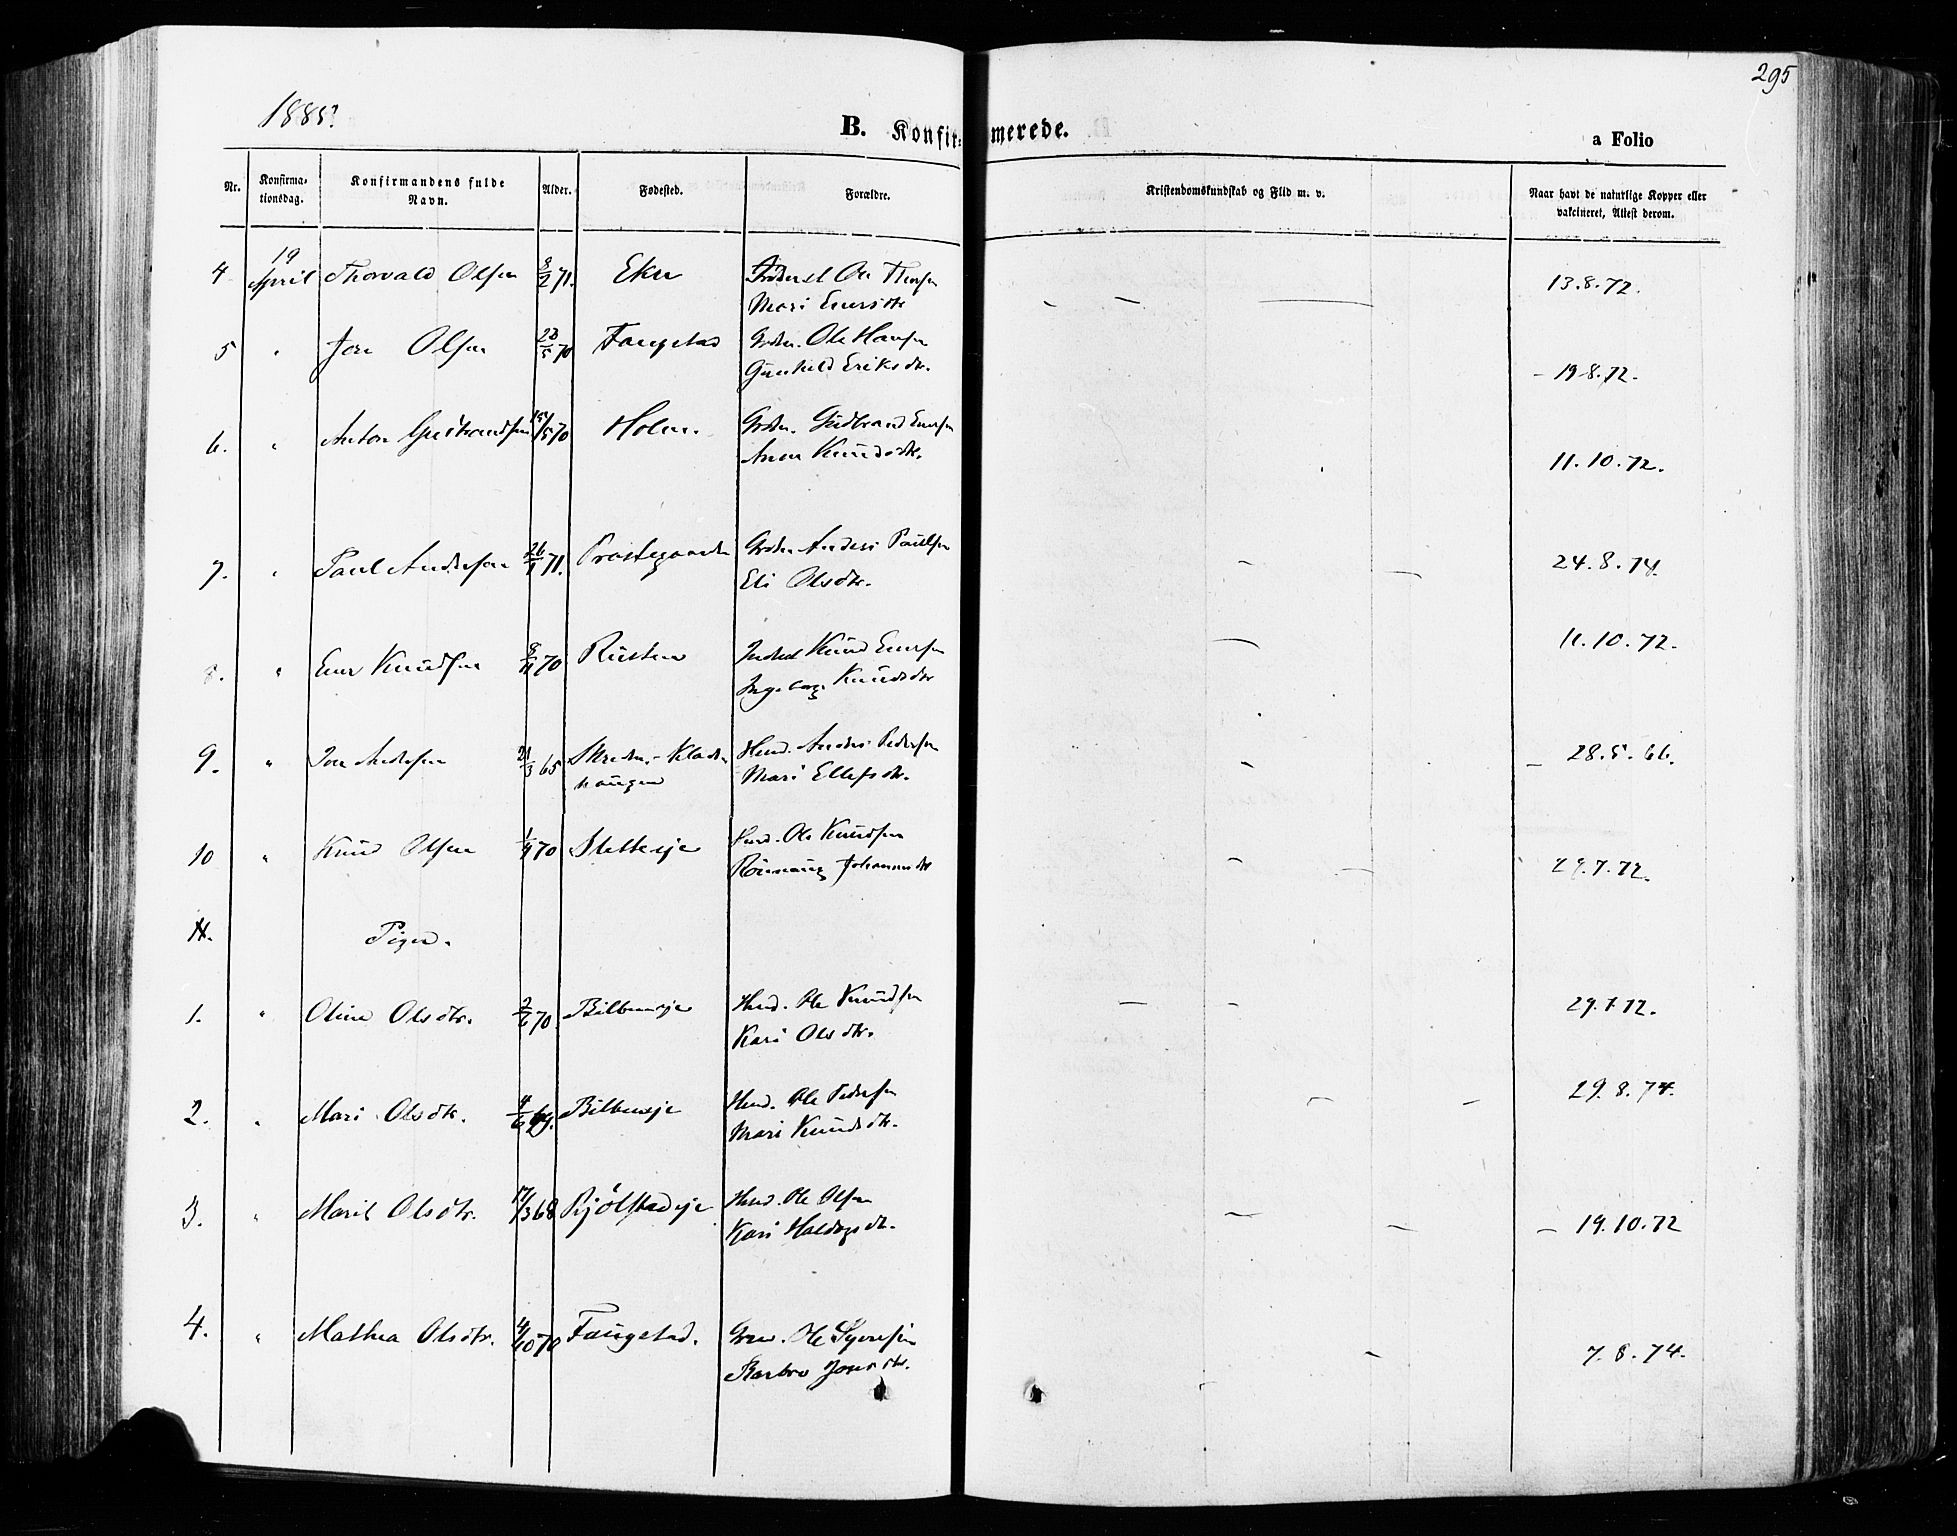 295
1885.
B. Konfirmerede.
a Folio
Nr. Konfirmationsdag. Konfirmandens fulde Navn. Alder. Fødested. Forældre. Kristendomskundskab og Flid m. v. Naar havt de naturlige Kopper eller vakcineret, Attest derom.
4 19 April Thorvald Olsen 8/2 71. Ekre Ole Thorsen 13.8.72.
Mari Enersdtr
5 " Jon Olsen 23/5 70 Faugstad Grdm. Ole Hansen
Gunhild Eriksdtr. - 19.8.72.
6. " Anton Gudbrandsen 15/5 70 Holm. Grdm. Gudbrand Enersen
Anne Knudsdtr. 11.10.72.
7. " Paul Andersen 26/1 71. Prostegaarden Grdm Anders Paulsen
Eli Olsdtr. 24.8.74.
8. " Ener Knudsen 9/11 70 Rusten Knud Enersen 11.10.72.
Ingeborg Knudsdtr
9. " Jon Andersen 21/3 65 Anders Pedersen 28.5.66.
haugen Mari Ellefsdtr.
10 " Knud Olsen 70 Sletteeje Husd. Ole Knudsen
Rønnaug Johannesdtr 29.7.72.
N. Piger.
1. " Oline Olsdtr. 2/6 70. Bilbeneje Husd. Ole Knudsen 29.7.72.
Kari Olsdtr.
2. " Mari Olsdtr. 4/6 69. Bilbeneje Husd. Ole Pedersen 29.8.74.
Mari Knudsdtr.
3. " Marit Olsdtr. 17/3 68 Kjølstadeje Husd. Ole Olsen
Kari Haldogsdtr. - 19.10.72
4. " Mathea Olsdtr. 4/10 70 Faugstad. Ole Syversen
Barbro Jonsdtr. 7.8.74.